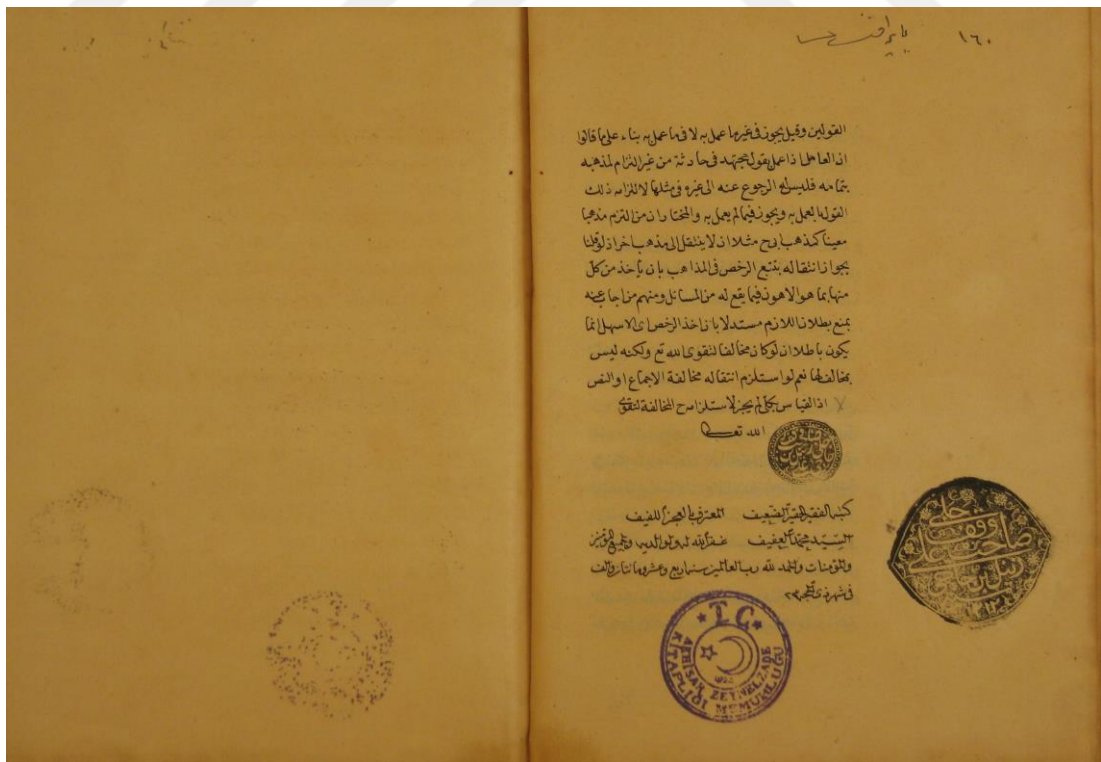 ١٦٠
القولين وقيل يجوز فى غير ما عمل به لا فيما عمل به بناء على ما قالوا
ان العامل اذا عمل بقول مجتهد فى حادثة من غير التزام لمذهبه
بتمامه فليس له الرجوع عنه الى غيره فى مثلها لالتزامه ذلك
القول بالعمل به ويجوز فيما لم يعمل به والمختار ان من التزم مذهبا
معينا كمذهب ابى ح مثلا ان لا ينتقل الى مذهب اخر اذ لو قلنا
بجواز انتقاله بتتبع الرخص فى المذاهب بان يأخذ من كل
منها بما هو الاهون فيما يقع له من المسائل ومنهم من اجاب عنه
بمنع بطلان اللازم مستدلا بان اخذ الرخص اى الاسهل انما
يكون باطلا ان لو كان مخالفا لتقوى الله تع ولكنه ليس
بمخالف لها نعم لو استلزم انتقاله مخالفة الاجماع او النص
اذ القياس جلى لم يجز لاستلزامه ح المخالفة لتقوى
الله تعالى
كتبه الفقير الحقير الضعيف المعترف بالعجز اللفيف
السيد محمد العفيف غفر الله له ولوالديه ولجميع المؤمنين
والمؤمنات والحمد لله رب العالمين سنه اربع وعشر ومائتان والف
فى شهر ذى الحجه ٢٣
وقف
حاجى على
زين
T.C.
AKHİSAR ZEYNELZADE
KİTAPLIĞI MEMURLUĞU